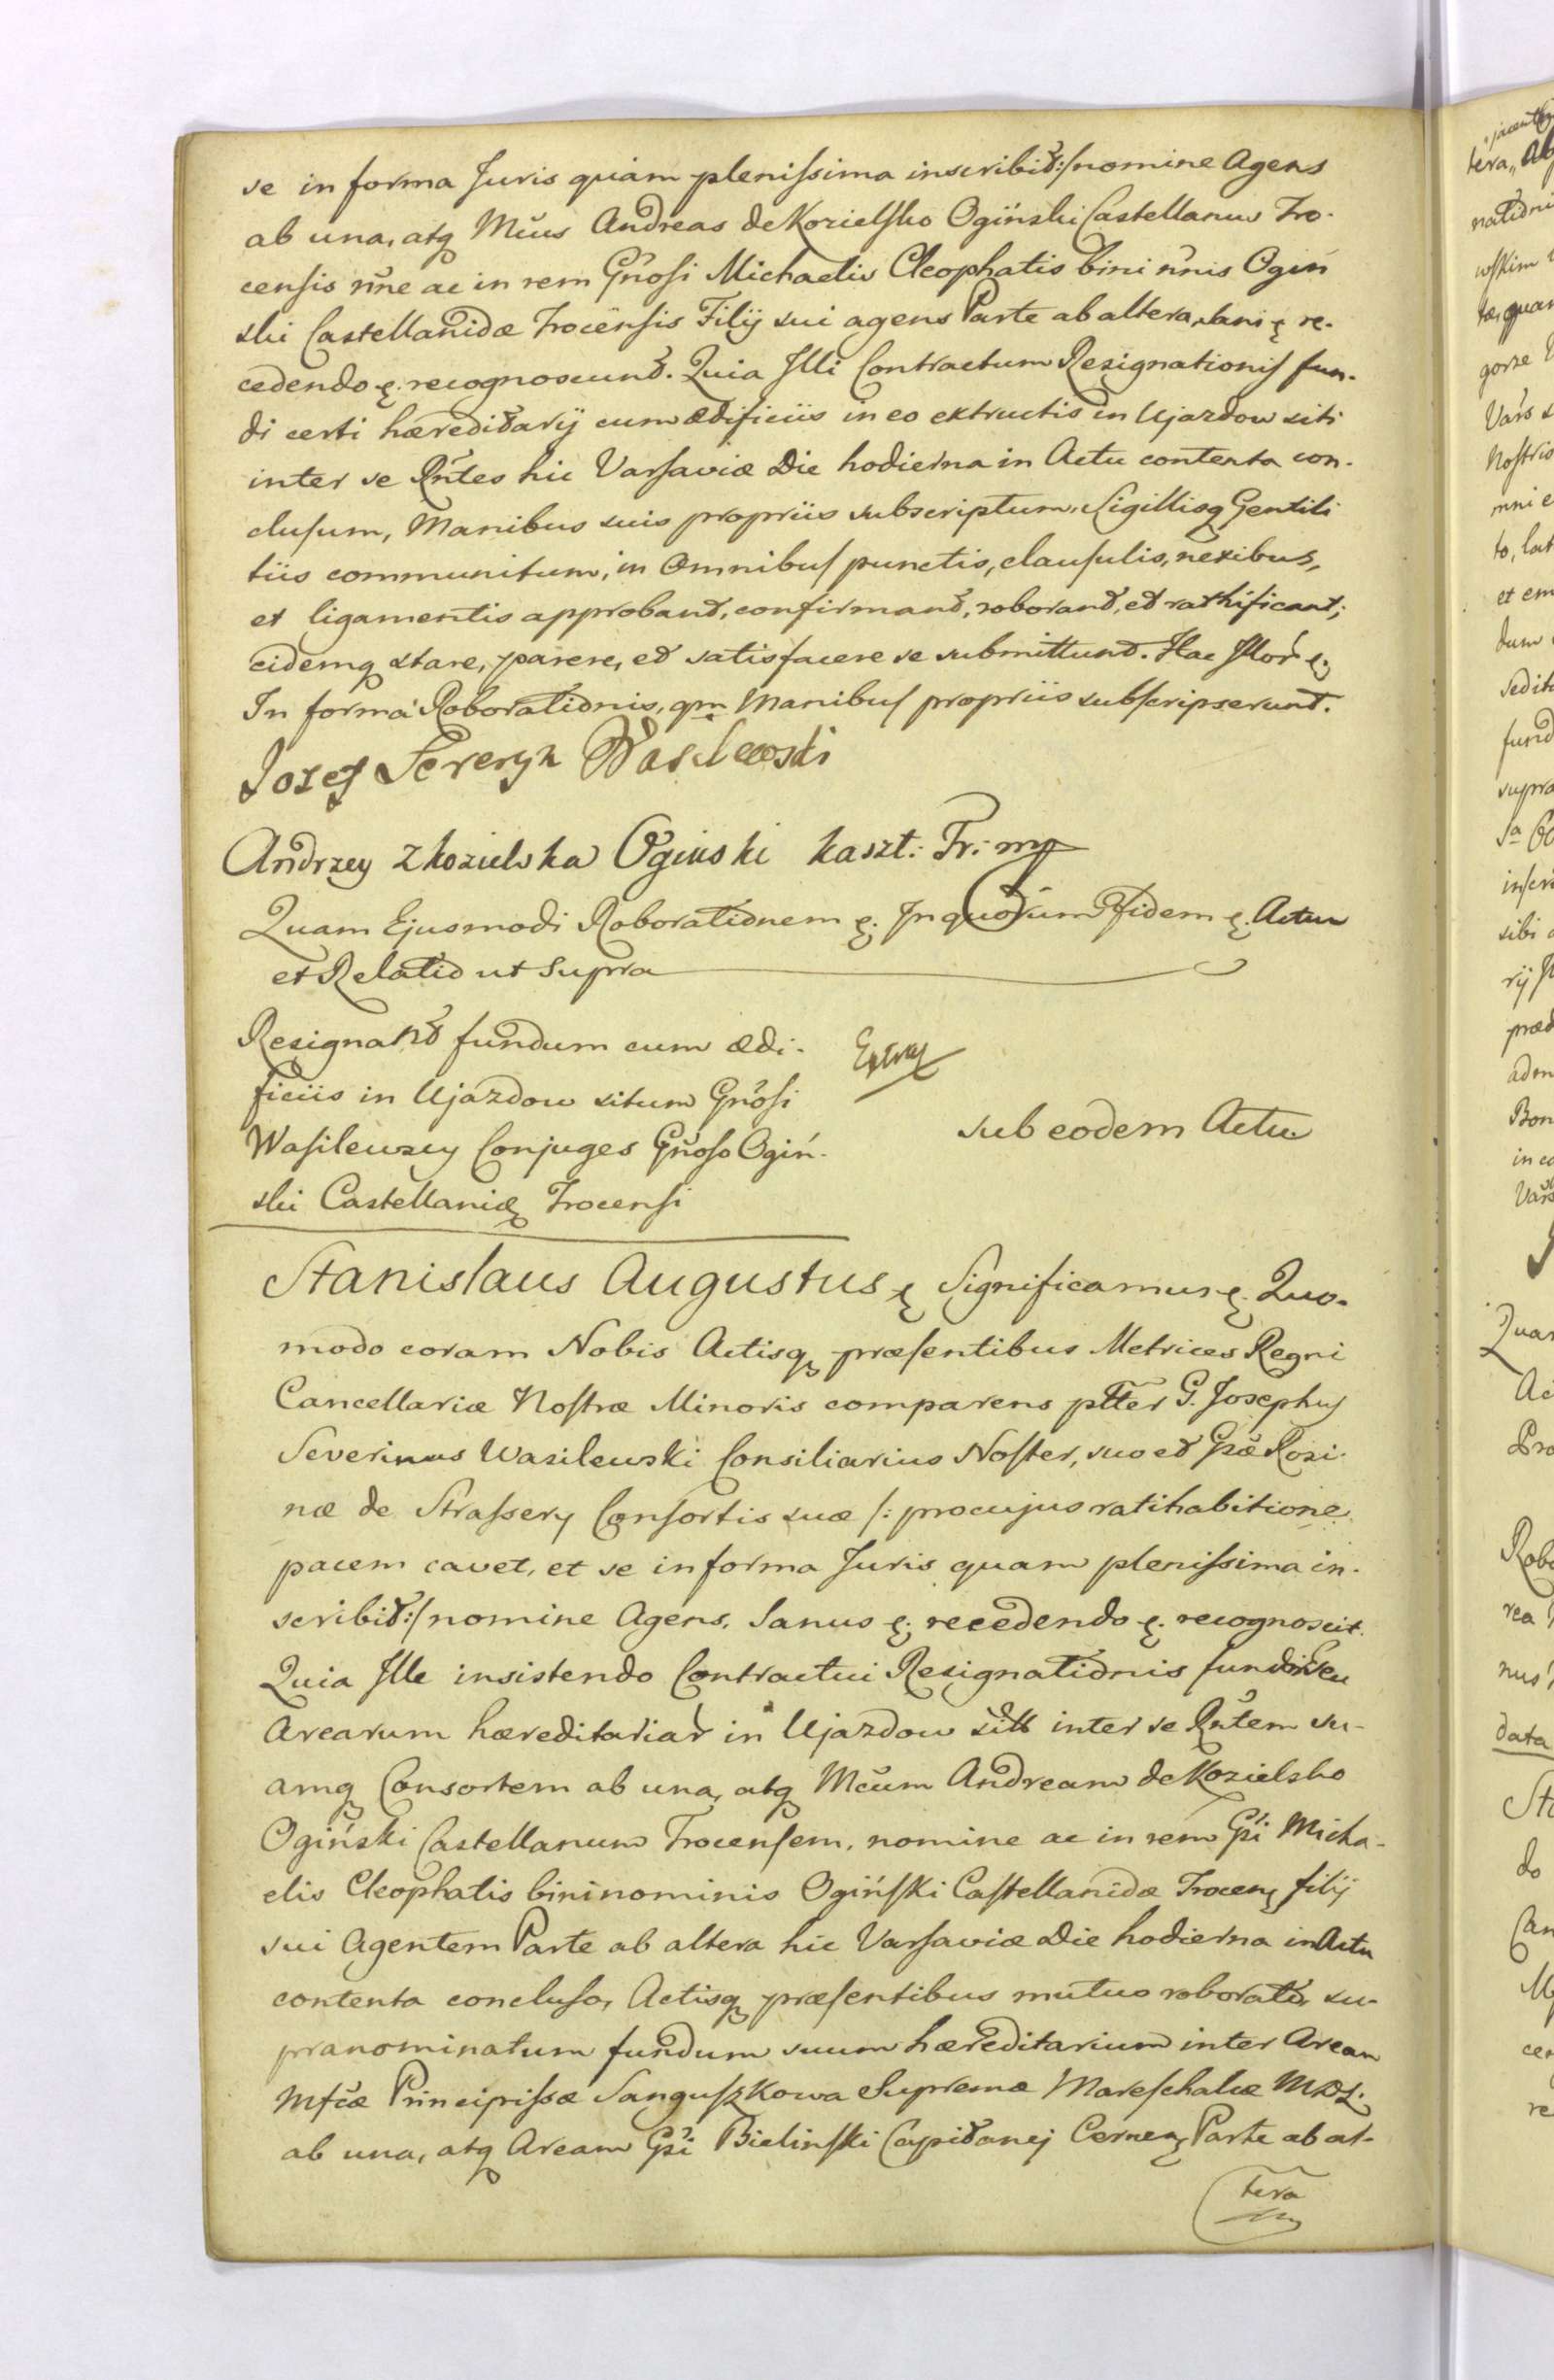 se in forma Juris quam plenissima inscribit:/ nomine Agens
ab una, atq Mcus Andreas de Kozielsko Ogiński Castellanus Tro-
censis nne ac in rem Gnosi Michaelis Cleophatis bini nnis Ogiń
ski Castellanidæ Trocensis Filij sui agens Parte ab altera, sani ę re-
cedendo ę. recognoscunt. Quia Illi Contractum Resignationis fun-
di certi hæreditarij cum ædificiis in eo extructis in Ujazdow siti
inter se Rntes hic Varsaviæ Die hodierna in Actu contenta con-
clusum, Manibus suis propriis subscriptum, Sigillisq Gentili
tiis communitum, in Omnibus punctis, clausulis, nexibus,
et ligamentis approbant, confirmant, roborant, et rathificant;
eidemq stare, parere, et satisfacere se submittunt. Hac Illor ę;
In forma Roborationis, qm Manibus propriis subscripserunt.
Jozef Seweryn Wasilewski
Andrzey z kozielska Oginski kaszt: Tr: mp
Quam Ejusmodi Roborationem ę. In quorum Fidem ę. Actum
et Relatio ut Supra
Resignant fundum cum ædi-
ficiis in Ujazdow situm Gnosi
Wasilewscy Conjuges Gnoso Ogiń-
ski Castellanidæ Trocensi
sub eodem Actu
Stanislaus Augustus ę Significamus ę. Quo-
modo coram Nobis Actisq præsentibus Metrices Regni
Cancellariæ Nostræ Minoris comparens ptter G. Josephus
Severinus Wasilewski Consiliarius Noster, suo et Gsæ Rozi-
næ de Strassery Consortis suæ /: pro cujus ratihabitione
pacem cavet, et se in forma Juris quam plenissima in-
scribit:/ nomine Agens, Sanus ę; recedendo ę. recognoscit.
Quia Ille insistendo Contractui Resignationis fundi Seu
Arearum hæreditariar in Ujazdow inter se Rntem su-
amq Consortem ab una, atq Mcum Andream de Kozielsko
Ogiński Castellanum Trocensem, nomine ac in rem Gsi Micha-
elis Cleophatis binominis Ogiński Castellanidæ Trocen filij
sui Agentem Parte ab altera hic Varsaviæ Die hodierna in Actu
contenta concluso, Actisq præsentibus mutuo roborato, su-
pranominatum fundum suum hæreditarium inter Aream
Mfcæ Principissæ Sanguszkowa Supremæ Mareschalcæ MDL.
ab una, atq Aream Gsi Bielinski Capitanej Cernen Parte ab al-
tera